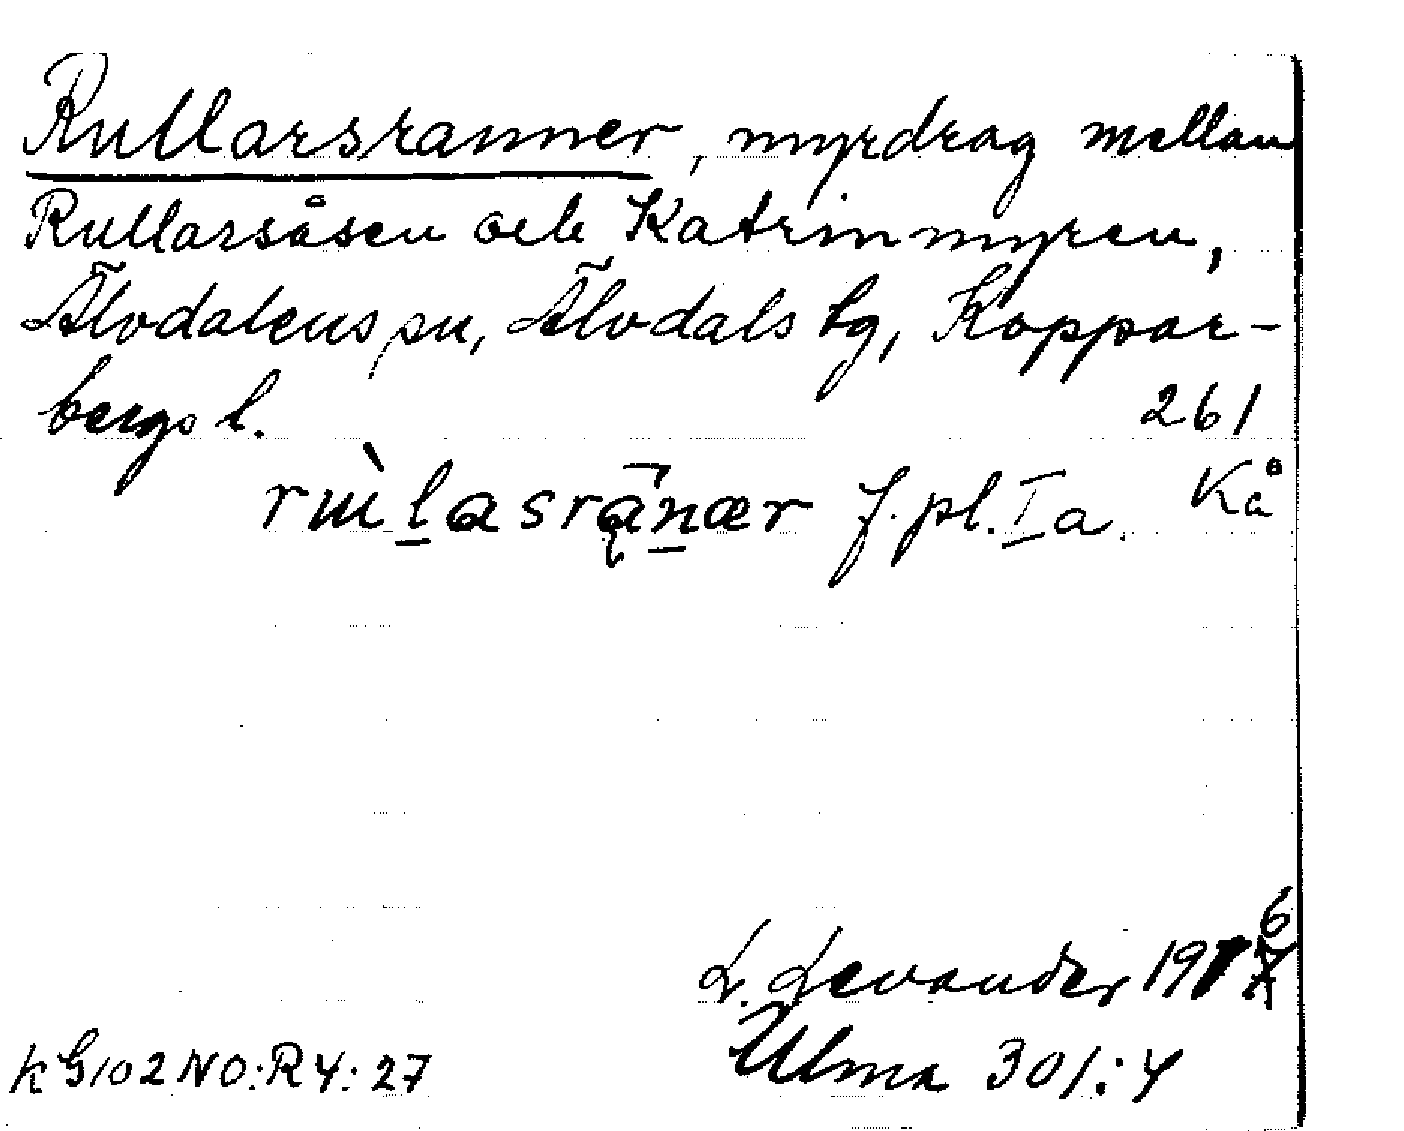 Rullarsranner, myrdrag mellan
Rullarsåsen och Katrinmyren,
Älvdalens sn, Älvdals tg, Koppar-
bergs l. 261
f. pl. I a. Kå
L. Levander 1916
Ulma 301:4
KG102NO:R4:27